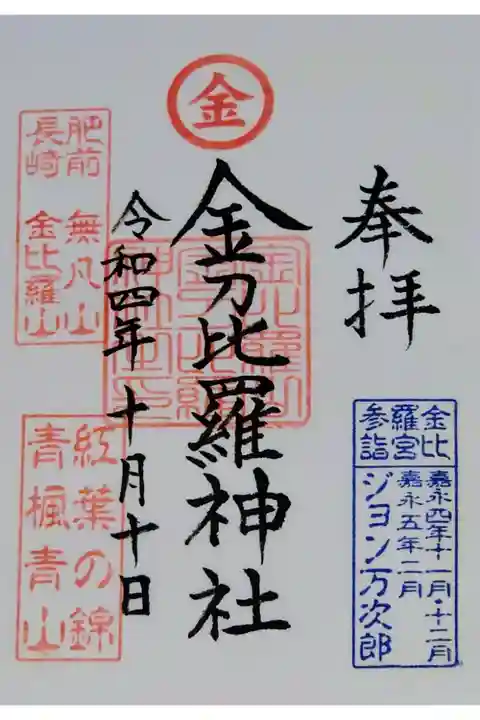 奉拝
金比
羅宮
参詣
嘉永四年十一月・十二月
嘉永五年二月
ジョン万次郎
金
金刀比羅神社
令和四年十月十日
肥前 無凡山
長崎 金比羅山
紅葉の錦
青楓青山